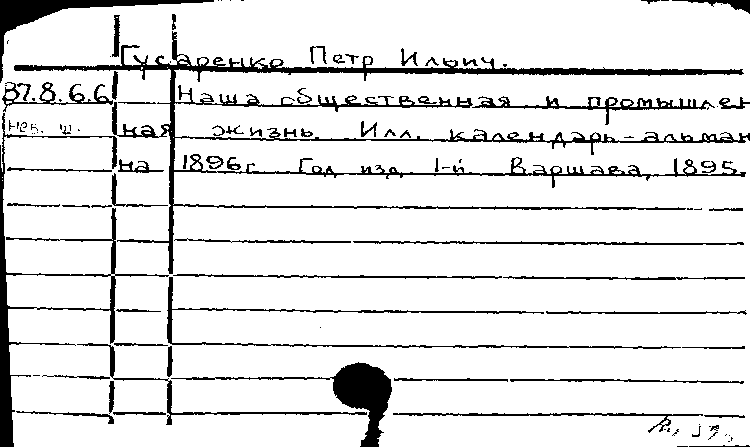 Гусаренко Петр Ильич.
37.8.6.6 Наша общественная и промышлен
нев. ш. ная жизнь. Илл. календарь-альман
на 1896 г. Год изд. 1-й. Варшава, 1895.